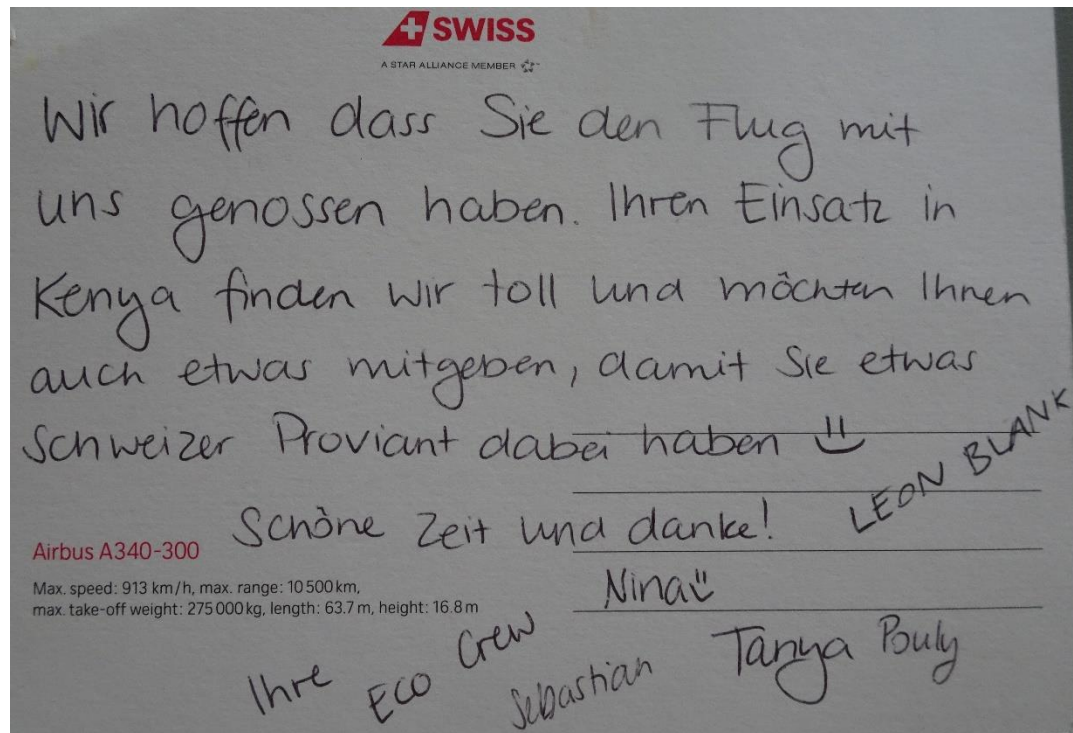 SWISS
A STAR ALLIANCE MEMBER
Wir hoffen dass Sie den Flug mit
uns genossen haben. Ihren Einsatz in
Kenya finden wir toll und möchten Ihnen
auch etwas mitgeben, damit Sie etwas
Schweizer Proviant dabei haben
LEON BLANK
Schöne Zeit und danke!
Airbus A340-300
Max. speed: 913 km/h, max. range: 10 500 km,
max. take-off weight: 275 000 kg, length: 63.7 m, height: 16.8 m
Nina
Ihre ECO Crew
Sebastian
Tanya Pouly